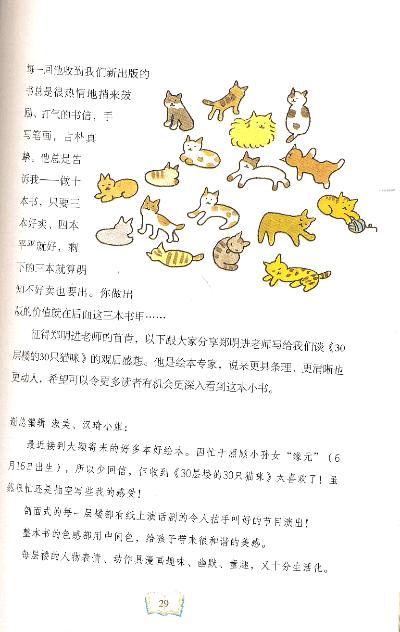 每一回他收到我们新出版的
书总是很热情地捎来鼓
励、打气的书信，手
写笔画，古朴真
挚。他总是告
诉我——做十
本书，只要三
本好卖，四本
平平就好，剩
下的三本就算明
知不好卖也要出。你做出
版的价值就在后面这三本书里……
征得郑明进老师的首肯，以下跟大家分享郑明进老师写给我们谈《30
层楼的30只猫咪》的观后感想。他是绘本专家，说来更具条理、更清晰也
更动人，希望可以令更多读者有机会更深入看到这本小书。
最近接到大颖寄来的好多本好绘本。因忙于照顾小孙女“缘元”（6
月16日出生），所以少回信，但收到《30层楼的30只猫咪》太喜欢了！虽
然很忙还是抽空写些我的感受！
剖面式的每一层楼都有纸上演话剧的令人拍手叫好的节目演出！
整本书的色感都用中间色，给孩子带来很和谐的美感。
每层楼的人物表情、动作具漫画趣味、幽默、童趣，又十分生活化。
29